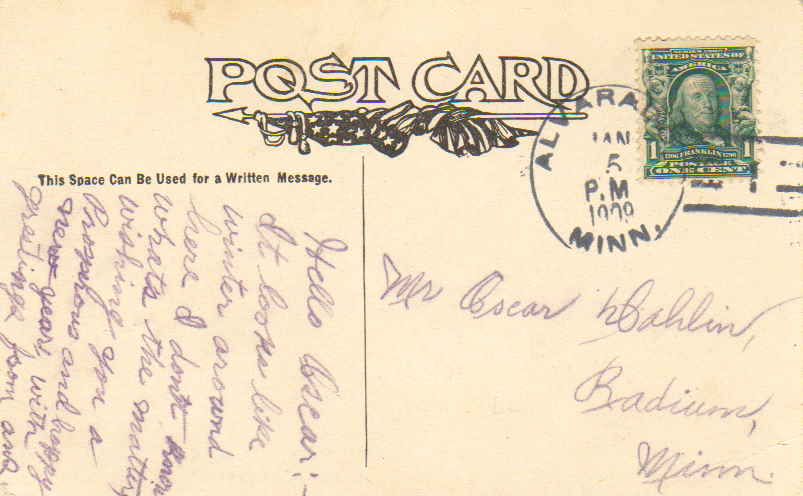 POST CARD
This Space Can Be Used for a Written Message.
Hello Oscar:-
It looks like
winter around
here I dont know
whats the matter
wishing you a
Prosprous and happy
new year, with
greetings from
UNITED STATES OF
AMERICA
1
1706 FRANKLIN 1790
1
POSTAGE
ONE CENT
ALVARA
JAN
5
P.M
1909
MINN.
Mr Oscar Dahlin,
Radium,
Minn.